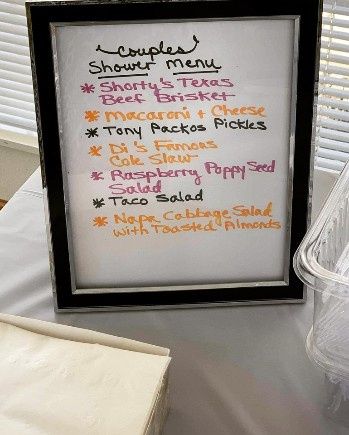 Couples
Shower Menu
* Shorty's Texas
Beef Brisket
* Macaroni + Cheese
* Tony Packos Pickles
* Di's Famous
Cole Slaw
* Raspberry Poppy Seed
Salad
* Taco Salad
* Napa Cabbage Salad
with Toasted Almonds